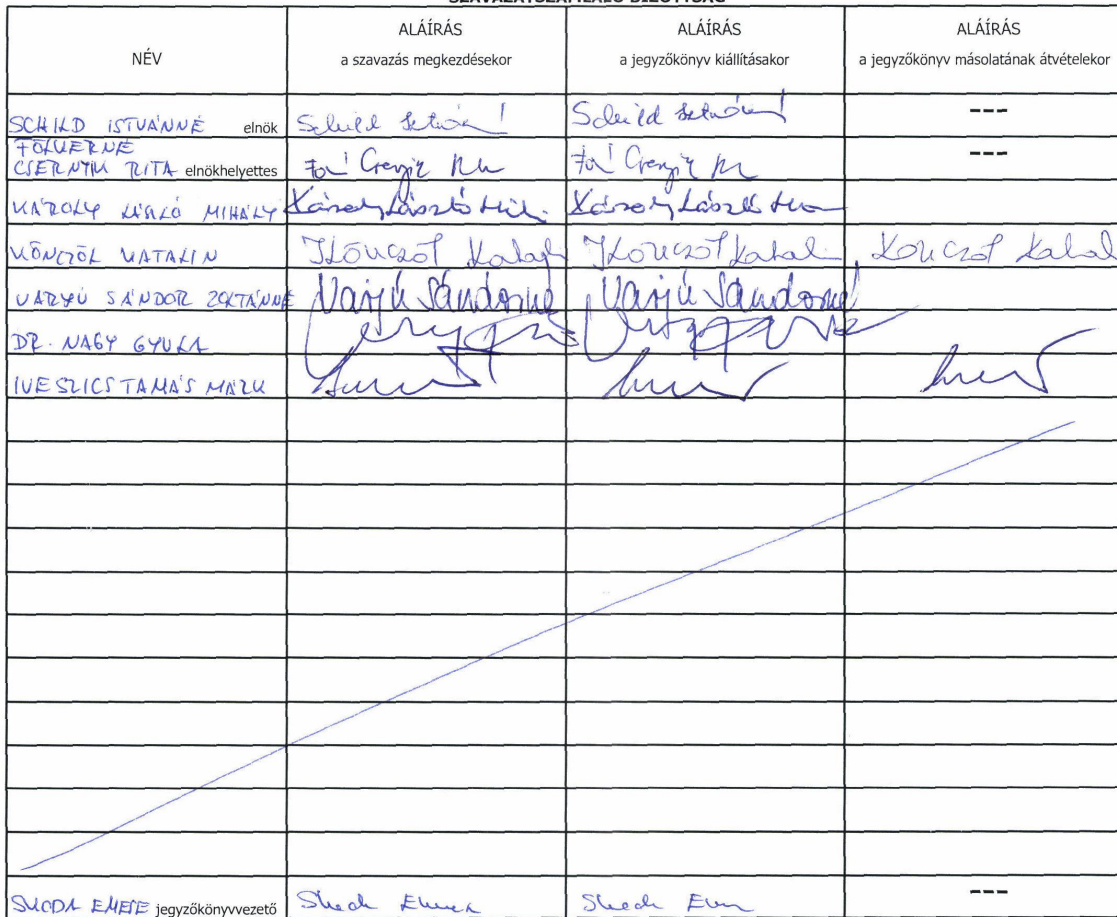 SZAVAZATSZÁMLÁLÓ BIZOTTSÁG
NÉV
ALÁÍRÁS
a szavazás megkezdésekor
ALÁÍRÁS
a jegyzőkönyv kiállításakor
ALÁÍRÁS
a jegyzőkönyv másolatának átvételekor
SCHILD ISTVÁNNÉ elnök Schild Schild ---
CSERNYIK RITA elnökhelyettes ---
KÁROLY LÁSZLÓ MIHÁLY Károly László Károly László
KÖNCZÖL KATALIN Könczöl Könczöl Könczöl
VARJÚ SÁNDOR ZOLTÁNNÉ Varjú Sándorné Varjú Sándorné
DR. NAGY GYULA
IVESZICS TAMÁS MÁRK
SKODA EMESE jegyzőkönyvvezető Skoda Skoda ---